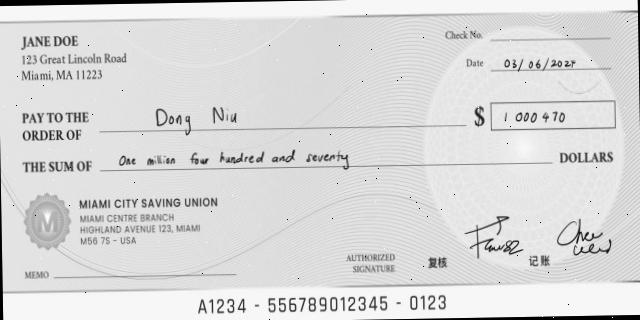 JANE DOE
123 Great Lincoln Road
Miami, MA 11223
Check No.
Date 03/06/2024
PAY TO THE ORDER OF Dong Niu
$ 1 000 470
THE SUM OF One million four hundred and seventy DOLLARS
MIAMI CITY SAVING UNION
MIAMI CENTRE BRANCH
HIGHLAND AVENUE 123, MIAMI
M56 7S - USA
M
MEMO
AUTHORIZED SIGNATURE
复核
记账
A1234 - 556789012345 - 0123